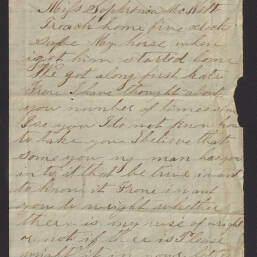 Miss Sophronia McNutt
I reach home five oclock
Safe My horse when
I got him started home
We got along first Rate
Frone I have thought about
you number of times since
I see you I do not know how
to take you I believe that
Some you ng man has you
in to it if that be true i want
to know it Frone i want
you to wright whether
ther is any use of
or not if there is Please